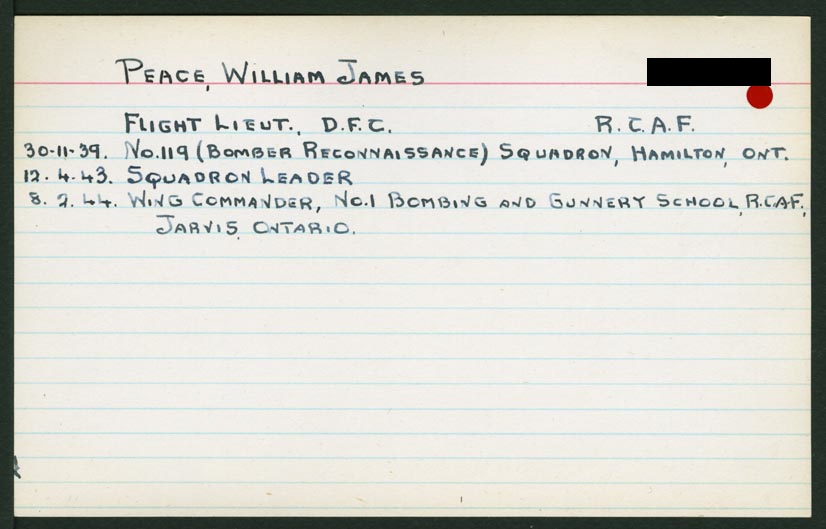 PEACE, WILLIAM JAMES
FLIGHT LIEUT., D.F.C. R.C.A.F.
30-11-39. No.119 (BOMBER RECONNAISSANCE) SQUADRON, HAMILTON, ONT.
12.4.43. SQUADRON LEADER
8.2.44. WING COMMANDER, No.1 BOMBING AND GUNNERY SCHOOL, R.C.A.F.,
JARVIS, ONTARIO.